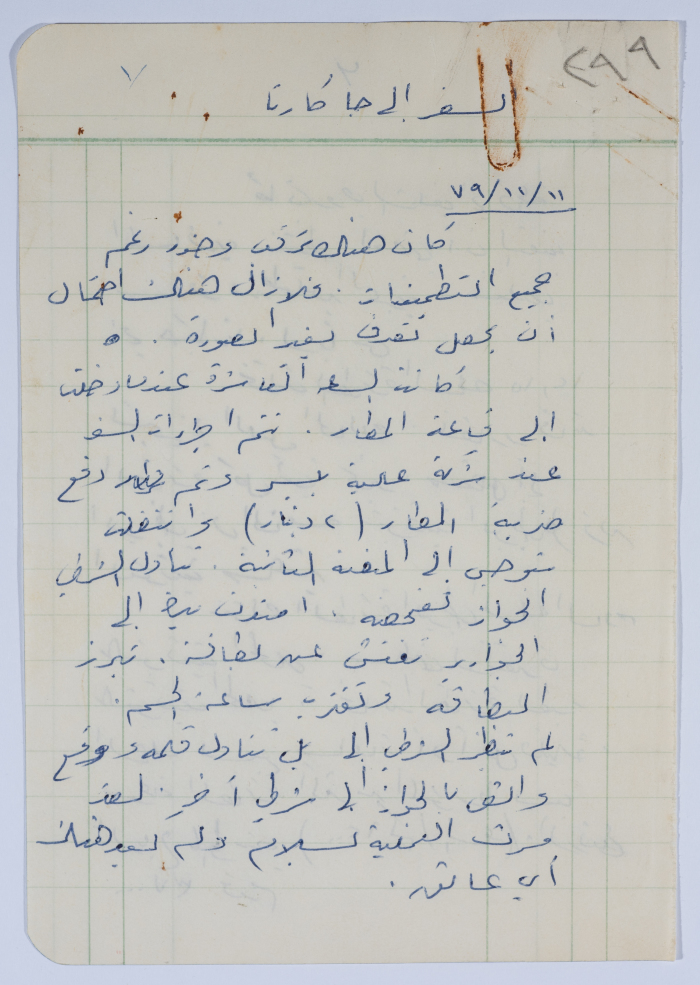 ٢٩٩
٧
السفر الى جاكارتا
٧٩/١١/١١
كان هناك ترقب وحذر رغم
جميع التطمينات. فلازال هناك احتمال
أن يحصل تغير الصورة.
كانت الساعة العاشرة عندما دخلت
الى قاعة المطار. تتم اجراءات السفر
عند شركة عالية بيسر وتم دفع
ضريبة المطار (٢ دينار) وانتقلت
الى المنضدة الثانية. تناول الشرطي
الجواز تفحصه. امتدت يده الى
الجوارير تفتش عن بطاقة. تبرز
البطاقة وتقترب ساعة الحسم.
لم ينظر الشرطي الي بل تناول قلمه ووقع
والقى بالجواز الى شرطي آخر. لقد
مرت العملية بسلام ولم يعد هناك
أي عائق.